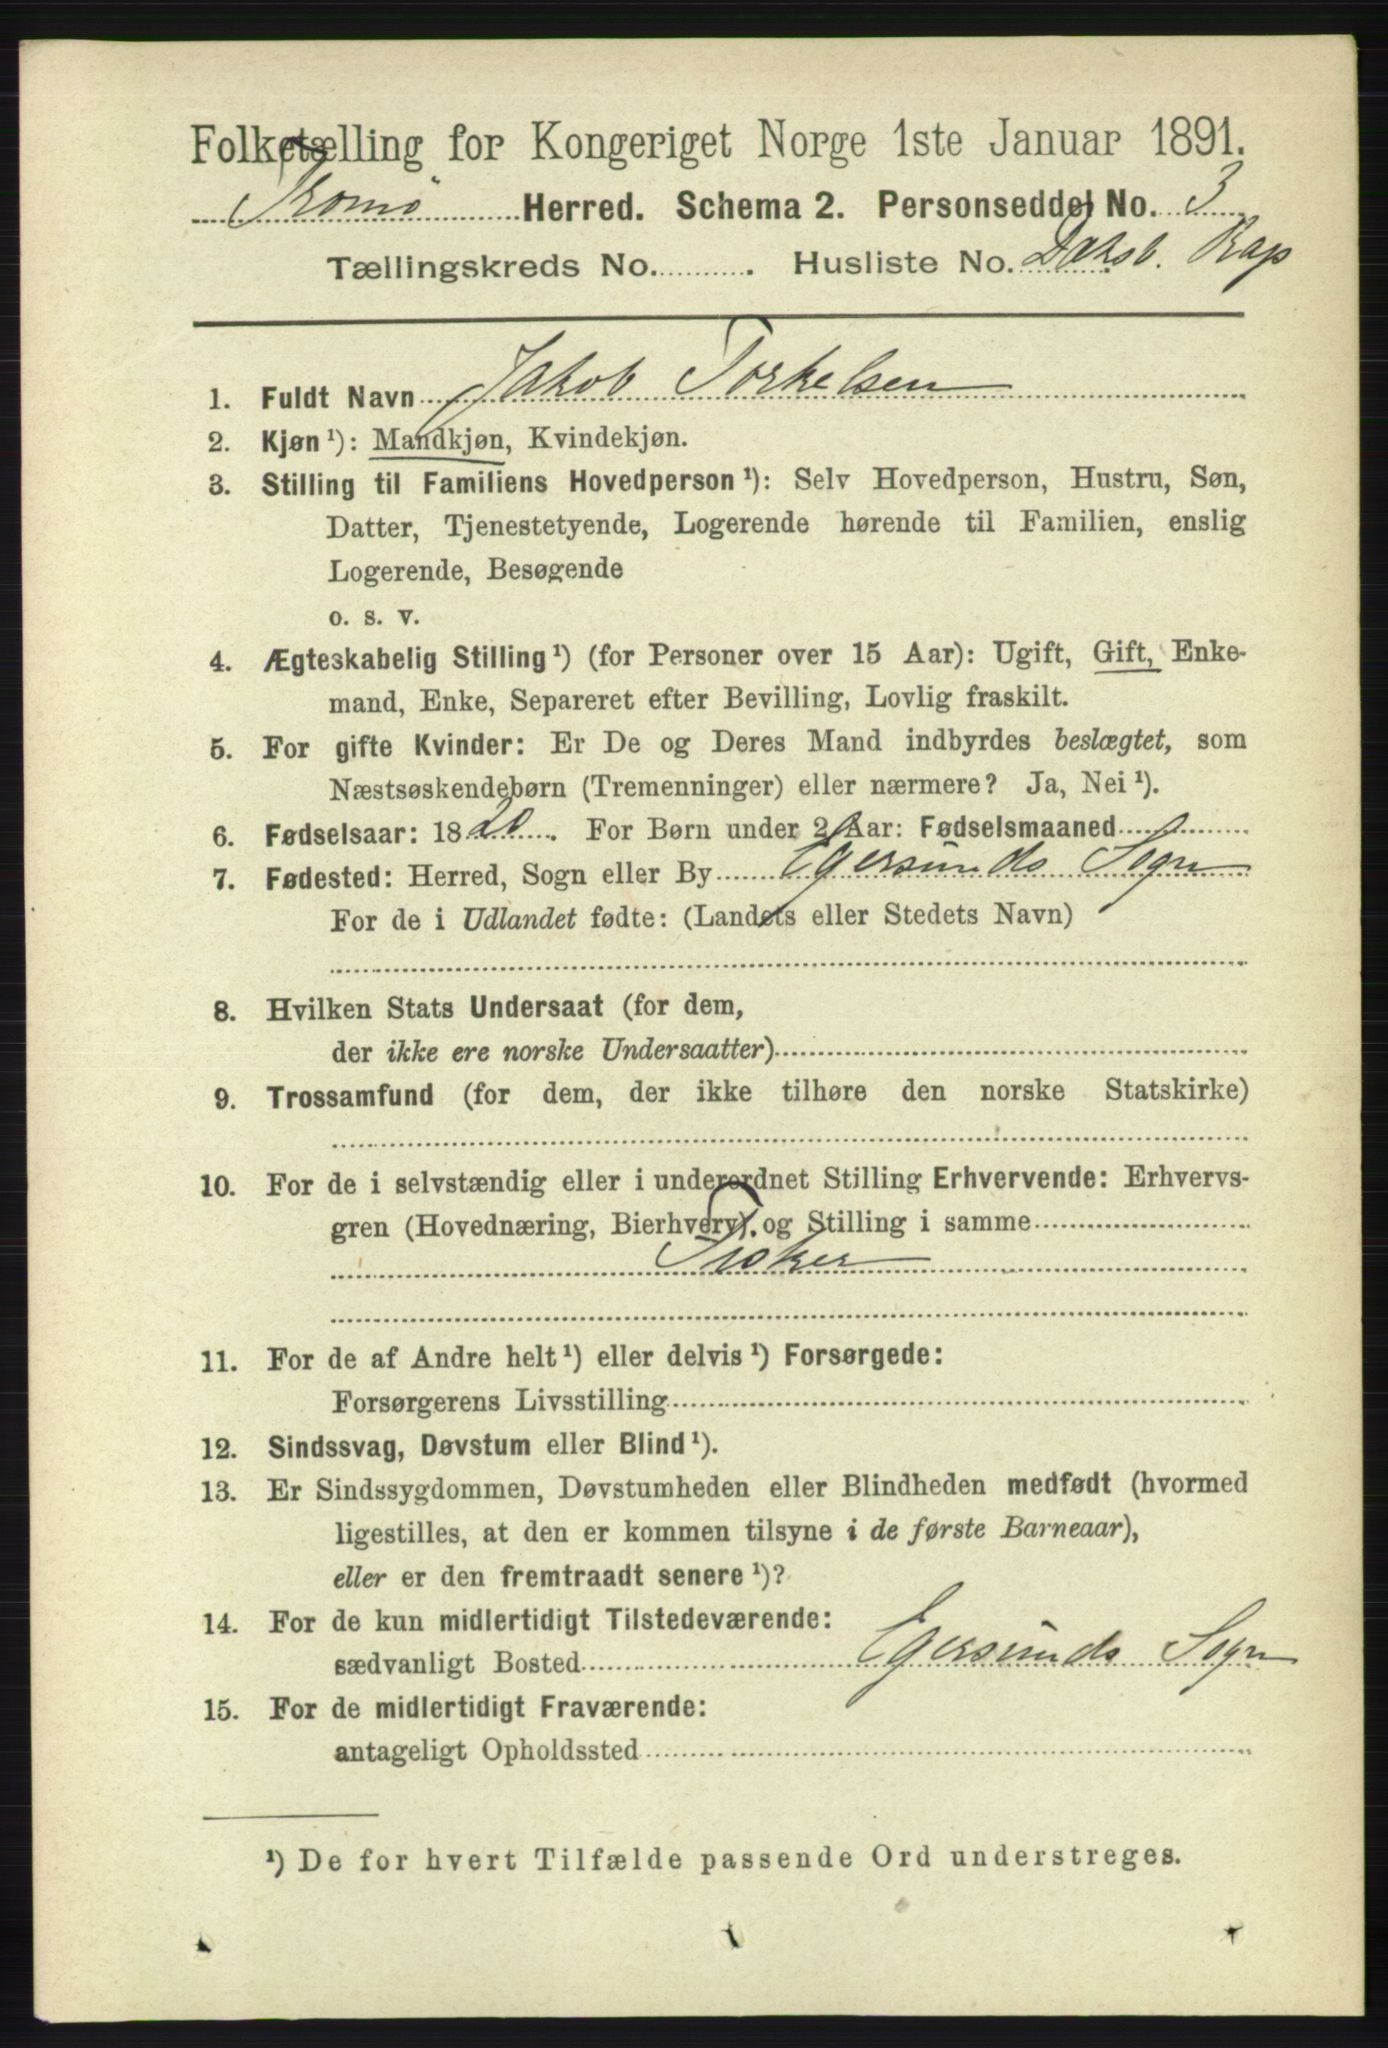 Folketælling for Kongeriget Norge 1ste Januar 1891.
Tromø Herred. Schema 2. Personseddel No. 3
Tællingskreds No. . Husliste No. Dæksb. Rap
1. Fuldt Navn Jakob Torkelsen
2. Kjøn ¹): Mandkjøn, Kvindekjøn.
3. Stilling til Familiens Hovedperson ¹): Selv Hovedperson, Hustru, Søn,
Datter, Tjenestetyende, Logerende hørende til Familien, enslig
Logerende, Besøgende
o. s. v.
4. Ægteskabelig Stilling ¹) (for Personer over 15 Aar): Ugift, Gift, Enke-
mand, Enke, Separeret efter Bevilling, Lovlig fraskilt.
5. For gifte Kvinder: Er De og Deres Mand indbyrdes beslægtet, som
Næstsøskendebørn (Tremenninger) eller nærmere? Ja, Nei ¹).
6. Fødselsaar: 1820. For Børn under 2 Aar: Fødselsmaaned
7. Fødested: Herred, Sogn eller By Egersunds Sogn
For de i Udlandet fødte: (Landets eller Stedets Navn)
8. Hvilken Stats Undersaat (for dem,
der ikke ere norske Undersaatter)
9. Trossamfund (for dem, der ikke tilhøre den norske Statskirke)
10. For de i selvstændig eller i underordnet Stilling Erhvervende: Erhvervs-
gren (Hovednæring, Bierhverv), og Stilling i samme
Fisker
11. For de af Andre helt ¹) eller delvis ¹) Forsørgede:
Forsørgerens Livsstilling
12. Sindssvag, Døvstum eller Blind ¹).
13. Er Sindssygdommen, Døvstumheden eller Blindheden medfødt (hvormed
ligestilles, at den er kommen tilsyne i de første Barneaar),
eller er den fremtraadt senere ¹)?
14. For de kun midlertidigt Tilstedeværende:
sædvanligt Bosted Egersunds Sogn
15. For de midlertidigt Fraværende:
antageligt Opholdssted
¹) De for hvert Tilfælde passende Ord understreges.